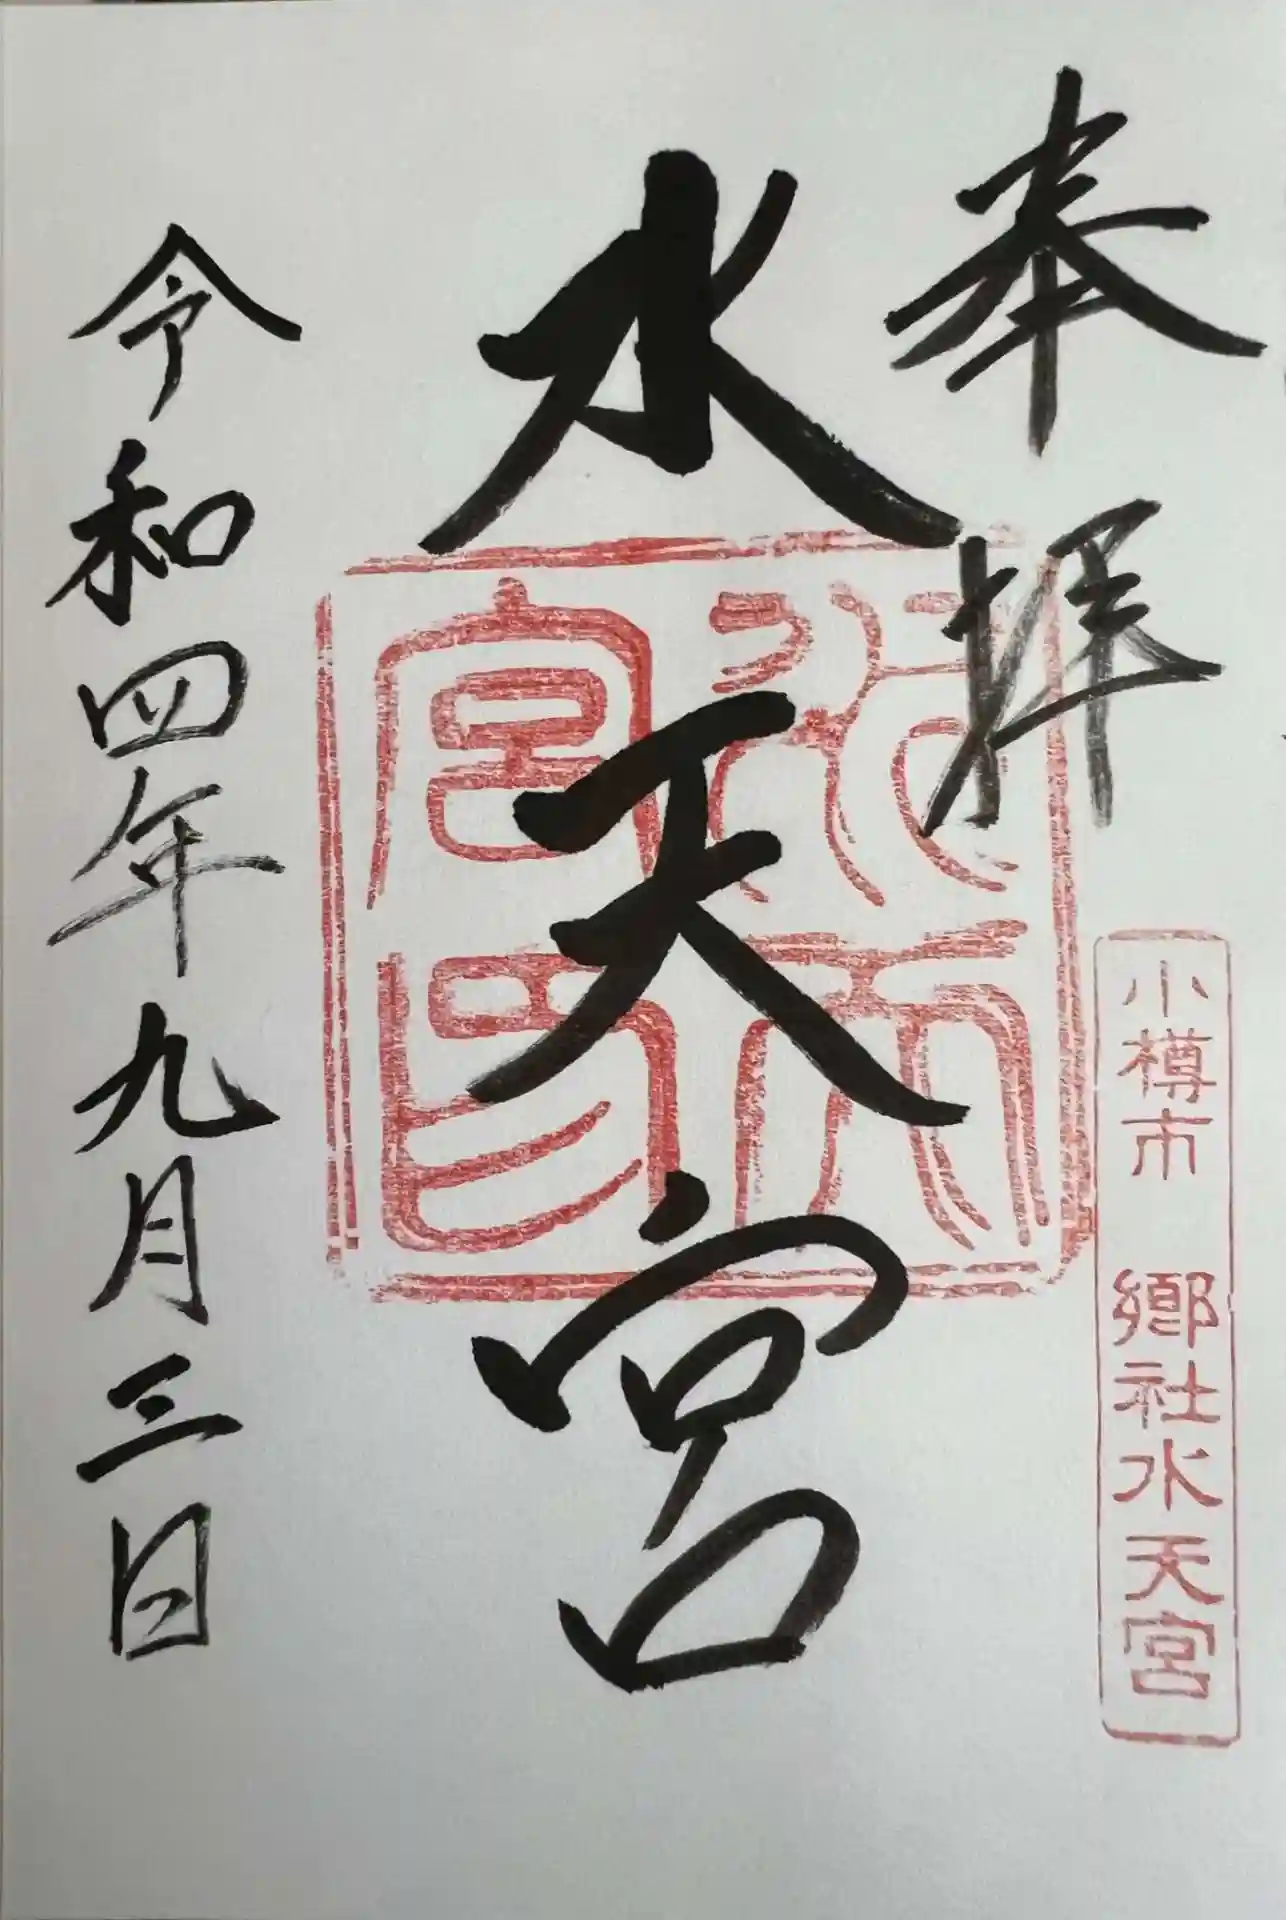 奉拝
小樽市 郷社水天宮
水天宮
令和四年九月三日